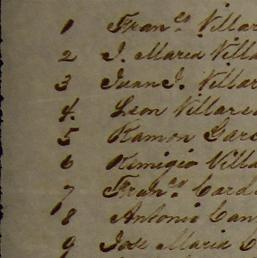 1 Fran.co Villar
2 J. Maria Villa
3 Juan J. Villar
4. Leon Villare
5 Ramon Garc
6 Remigio Villa
7 Fran.co Card
8 Antonio Can
9 Jose Maria C